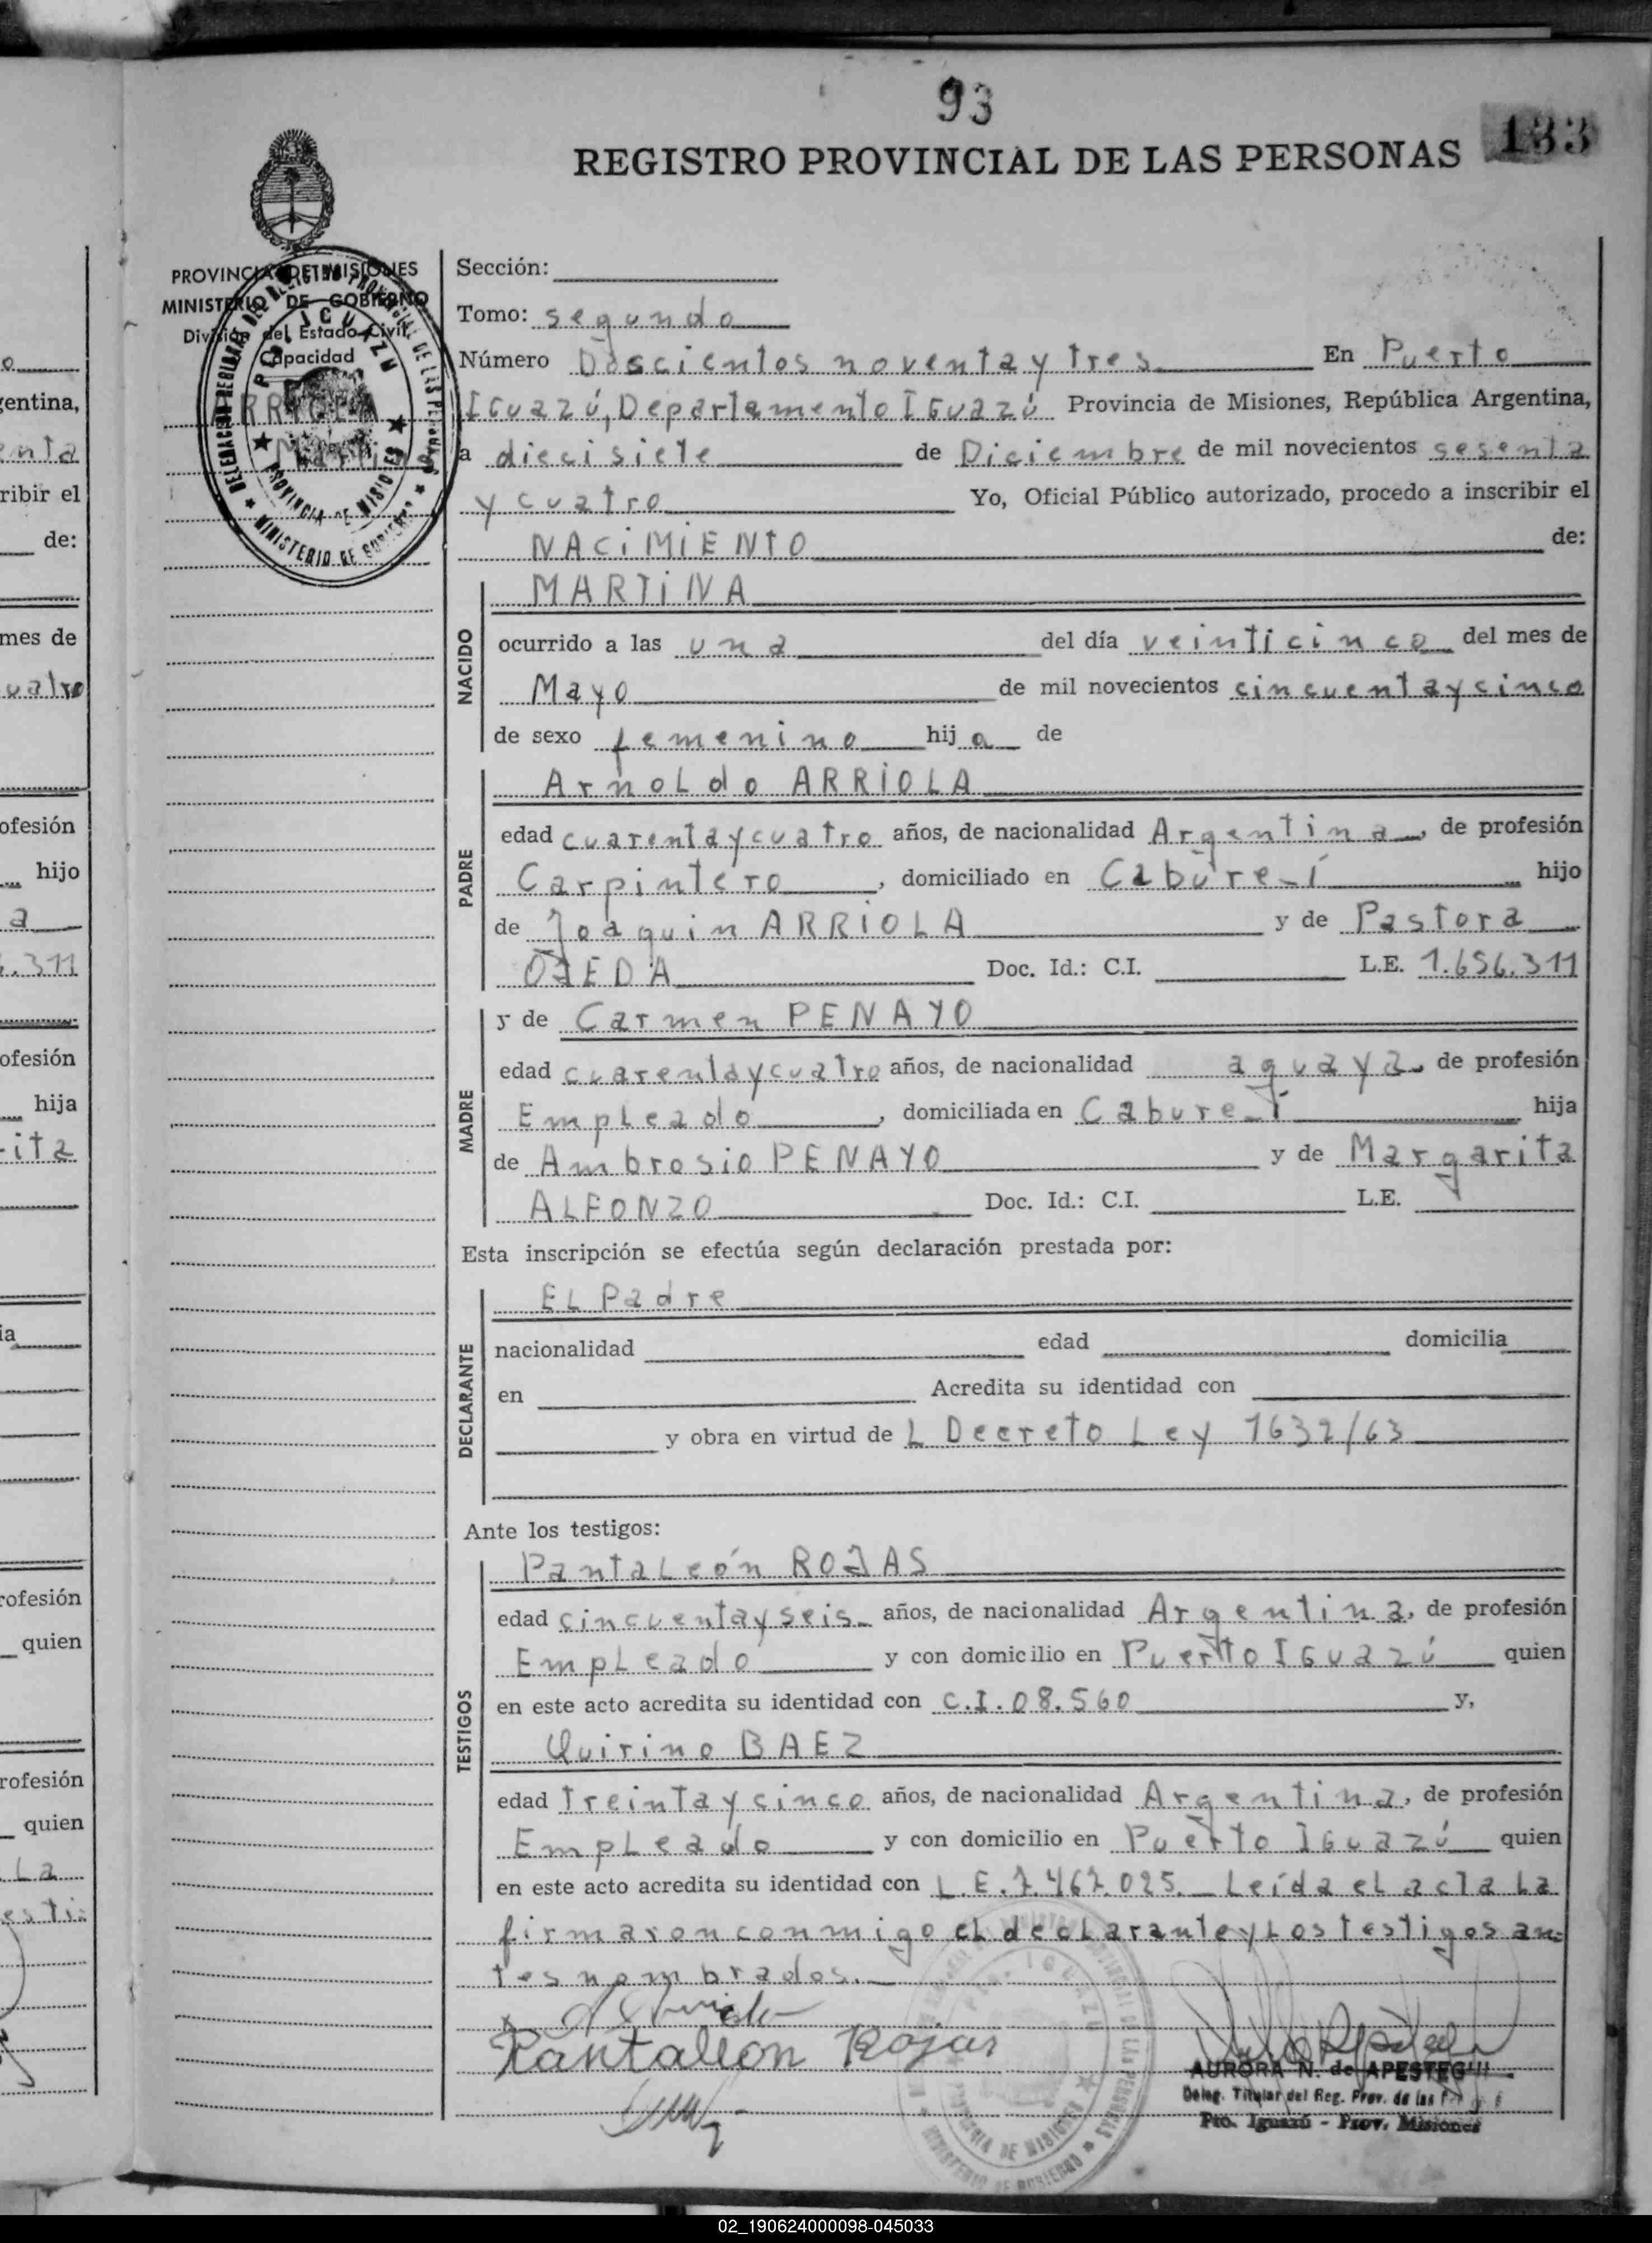 93
133
REGISTRO PROVINCIAL DE LAS PERSONAS
PROVINCIA DE MISIONES
MINISTERIO DE GOBIERNO
División del Estado Civil
Capacidad
ARRIOLA
Martina
Sección:
Tomo: segundo
Número Doscientos noventa y tres En Puerto
IGuazú, Departamento IGuazú Provincia de Misiones, República Argentina,
a diecisiete de Diciembre de mil novecientos sesenta
y cuatro Yo, Oficial Público autorizado, procedo a inscribir el
NACIMIENTO de:
NACIDO
MARTINA
ocurrido a las una del día veinticinco del mes de
Mayo de mil novecientos cincuenta y cinco
de sexo femenino hija de
PADRE
Arnoldo ARRIOLA
edad cuarenta y cuatro años, de nacionalidad Argentina, de profesión
Carpintero, domiciliado en Cabure-í hijo
de Joaquin ARRIOLA y de Pastora
OJEDA Doc. Id.: C.I. L.E. 1.656.311
MADRE
y de Carmen PENAYO
edad cuarenta y cuatro años, de nacionalidad aguaya, de profesión
Empleado, domiciliada en Cabure-í hija
de Ambrosio PENAYO y de Margarita
ALFONZO Doc. Id.: C.I. L.E.
Esta inscripción se efectúa según declaración prestada por:
DECLARANTE
El Padre
nacionalidad edad domicilia
en Acredita su identidad con
y obra en virtud de L Decreto Ley 1632/63
Ante los testigos:
TESTIGOS
Pantaleón ROJAS
edad cincuenta y seis años, de nacionalidad Argentina, de profesión
Empleado y con domicilio en Puerto IGuazú quien
en este acto acredita su identidad con C.I. 08.560 y,
Quirino BAEZ
edad treinta y cinco años, de nacionalidad Argentina, de profesión
Empleado y con domicilio en Puerto IGuazú quien
en este acto acredita su identidad con L.E. 7.467.025. Leída el acta la
firmaron conmigo el declarante y los testigos an-
tes nombrados.
Pantaleon Rojas
AURORA N. de APESTEGUI
Deleg. Titular del Reg. Prov. de las
Pto. Iguazú - Prov. Misiones
02_190624000098-045033